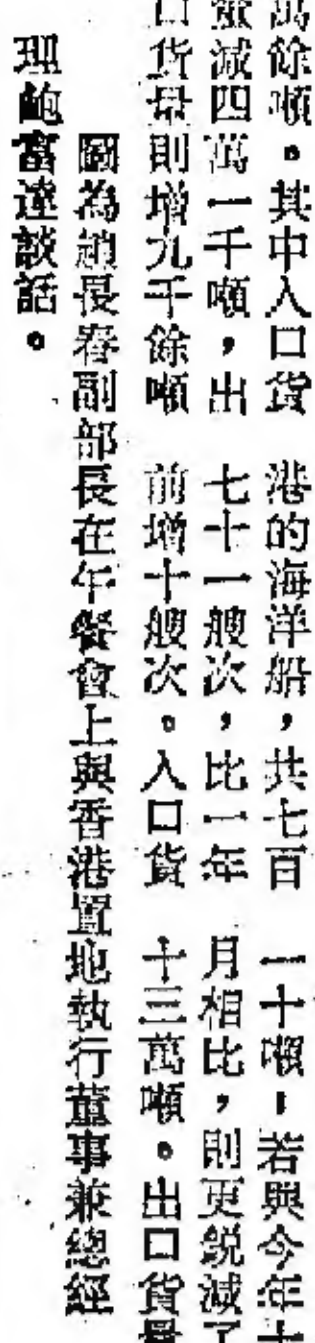 萬餘噸。其中入口貨
量減四萬一千噸，出
口貨量則增九千餘噸
港的海洋船，共七百
七十一艘次，比一年
前增十艘次。入口貨
一十噸，若與今年十
月相比，則更銳減了
十三萬噸。出口貨量
圖為趙長春副部長在午餐會上與香港置地執行董事兼總經
理鮑富達談話。